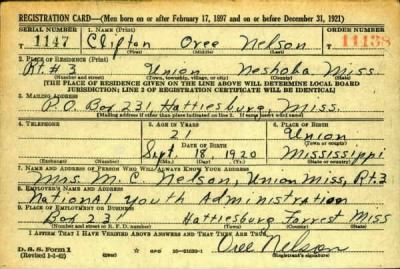 REGISTRATION CARD—(Men born on or after February 17, 1897 and on or before December 31, 1921)
SERIAL NUMBER 1. NAME (Print) ORDER NUMBER
T 1147 Clifton Oree Nelson 11138
(First) (Middle) (Last)
2. PLACE OF RESIDENCE (Print)
Rt. #3 Union Neshoba Miss.
(Number and street) (Town, township, village, or city) (County) (State)
[THE PLACE OF RESIDENCE GIVEN ON THE LINE ABOVE WILL DETERMINE LOCAL BOARD
JURISDICTION; LINE 2 OF REGISTRATION CERTIFICATE WILL BE IDENTICAL]
3. MAILING ADDRESS
P.O. Box 231, Hattiesburg, Miss.
[Mailing address if other than place indicated on line 2. If same insert word same]
4. TELEPHONE 5. AGE IN YEARS 6. PLACE OF BIRTH
21 Union
DATE OF BIRTH (Town or county)
Sept. 18, 1920 Mississippi
(Exchange) (Number) (Mo.) (Day) (Yr.) (State or country)
7. NAME AND ADDRESS OF PERSON WHO WILL ALWAYS KNOW YOUR ADDRESS
Mrs. M. C. Nelson, Union Miss, Rt. 3
8. EMPLOYER'S NAME AND ADDRESS
National Youth Administration
9. PLACE OF EMPLOYMENT OR BUSINESS
Box 231 Hattiesburg Forrest Miss
(Number and street or R. F. D. number) (Town) (County) (State)
I AFFIRM THAT I HAVE VERIFIED ABOVE ANSWERS AND THAT THEY ARE TRUE.
D. S. S. Form 1 GPO Oree Nelson
(Revised 1-1-42) (Registrant's signature)